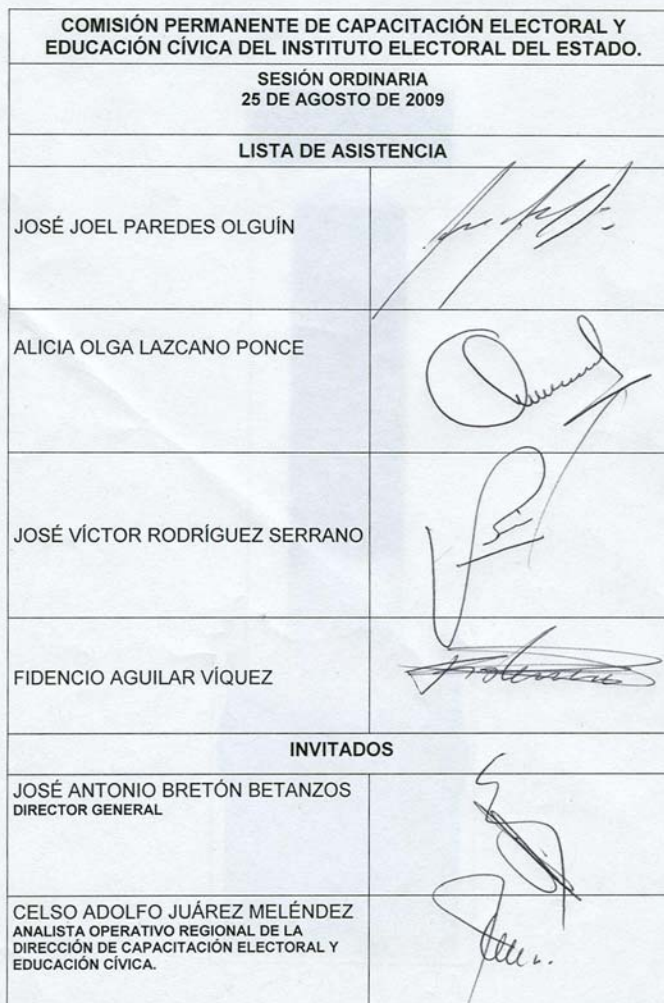 COMISIÓN PERMANENTE DE CAPACITACIÓN ELECTORAL Y
EDUCACIÓN CÍVICA DEL INSTITUTO ELECTORAL DEL ESTADO.
SESIÓN ORDINARIA
25 DE AGOSTO DE 2009
LISTA DE ASISTENCIA
JOSÉ JOEL PAREDES OLGUÍN
ALICIA OLGA LAZCANO PONCE
JOSÉ VÍCTOR RODRÍGUEZ SERRANO
FIDENCIO AGUILAR VÍQUEZ
INVITADOS
JOSÉ ANTONIO BRETÓN BETANZOS
DIRECTOR GENERAL
CELSO ADOLFO JUÁREZ MELÉNDEZ
ANALISTA OPERATIVO REGIONAL DE LA
DIRECCIÓN DE CAPACITACIÓN ELECTORAL Y
EDUCACIÓN CÍVICA.